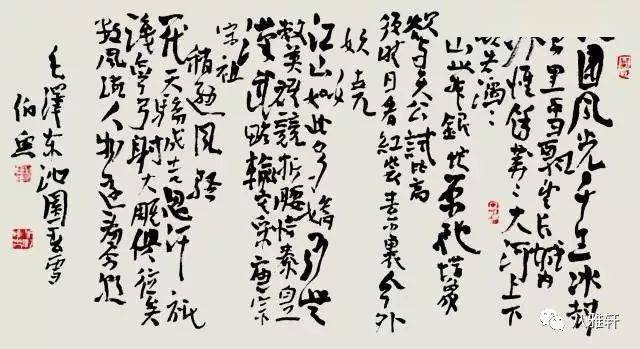 国風光千里冰封
里雪飘望长城内
外惟馀莽莽大河上下
顿失滔滔
山舞银蛇原驰蜡象
欲与天公试比高
须晴日看红装素裹分外
妖娆
江山如此多娇引无
数英雄竞折腰惜秦皇
汉武略输文采唐宗
宋祖
稍逊风骚
一代天骄成吉思汗祇
識弯弓射大雕俱往矣
数風流人物还看今朝
毛澤东沁園春雪
伯
八雅轩